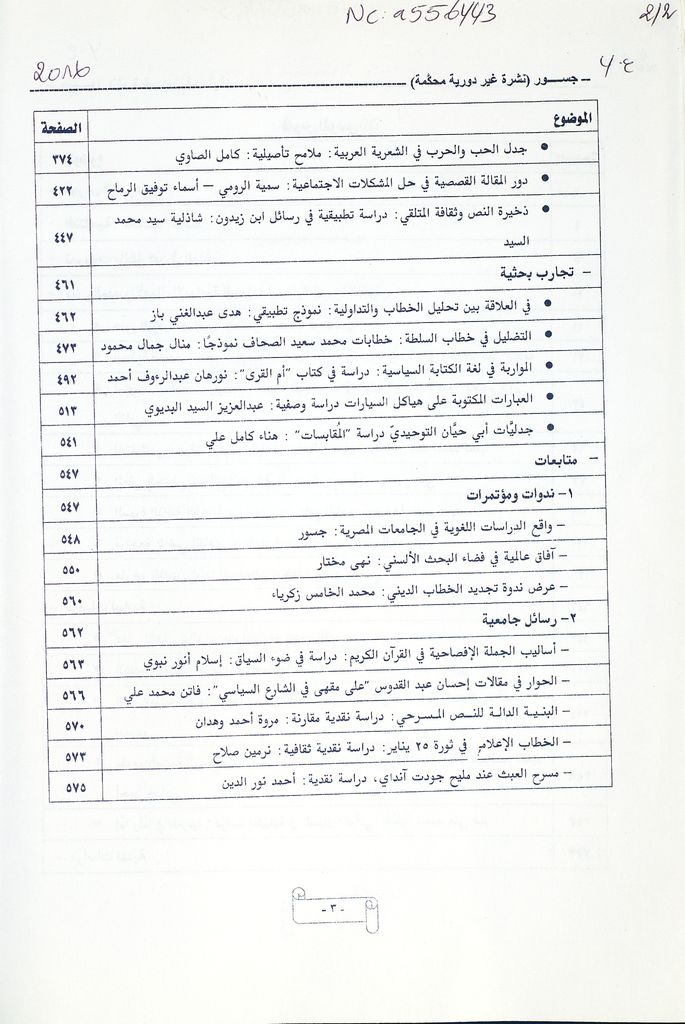 NC: a556443
2/2
2016
ـ جســـور (نشرة غير دورية محكّمة)
الموضوع الصفحة
• جدل الحب والحرب في الشعرية العربية: ملامح تأصيلية: كامل الصاوي ٣٧٤
• دور المقالة القصصية في حل المشكلات الاجتماعية: سمية الرومي – أسماء توفيق الرماح ٤٢٢
• ذخيرة النص وثقافة المتلقي: دراسة تطبيقية في رسائل ابن زيدون: شاذلية سيد محمد
السيد ٤٤٧
– تجارب بحثية ٤٦١
• في العلاقة بين تحليل الخطاب والتداولية: نموذج تطبيقي: هدى عبدالغني باز ٤٦٢
• التضليل في خطاب السلطة: خطابات محمد سعيد الصحاف نموذجًا: منال جمال محمود ٤٧٣
• المواربة في لغة الكتابة السياسية: دراسة في كتاب "أم القرى": نورهان عبدالرءوف أحمد ٤٩٢
• العبارات المكتوبة على هياكل السيارات دراسة وصفية: عبدالعزيز السيد البديوي ٥١٣
• جدليَّات أبي حيَّان التوحيديّ دراسة "المُقابسات" : هناء كامل علي ٥٤١
– متابعات ٥٤٧
١– ندوات ومؤتمرات ٥٤٧
– واقع الدراسات اللغوية في الجامعات المصرية: جسور ٥٤٨
– آفاق عالمية في فضاء البحث الألسني: نهى مختار ٥٥٠
– عرض ندوة تجديد الخطاب الديني: محمد الخامس زكرياء ٥٦٠
٢– رسائل جامعية ٥٦٢
– أساليب الجملة الإفصاحية في القرآن الكريم: دراسة في ضوء السياق: إسلام أنور نبوي ٥٦٣
– الحوار في مقالات إحسان عبد القدوس "على مقهى في الشارع السياسي": فاتن محمد علي ٥٦٦
– البنية الدالة للنص المسرحي: دراسة نقدية مقارنة: مروة أحمد وهدان ٥٧٠
– الخطاب الإعلامي في ثورة ٢٥ يناير: دراسة نقدية ثقافية: نرمين صلاح ٥٧٣
– مسرح العبث عند مليح جودت آنداي، دراسة نقدية: أحمد نور الدين ٥٧٥
- ٣ -